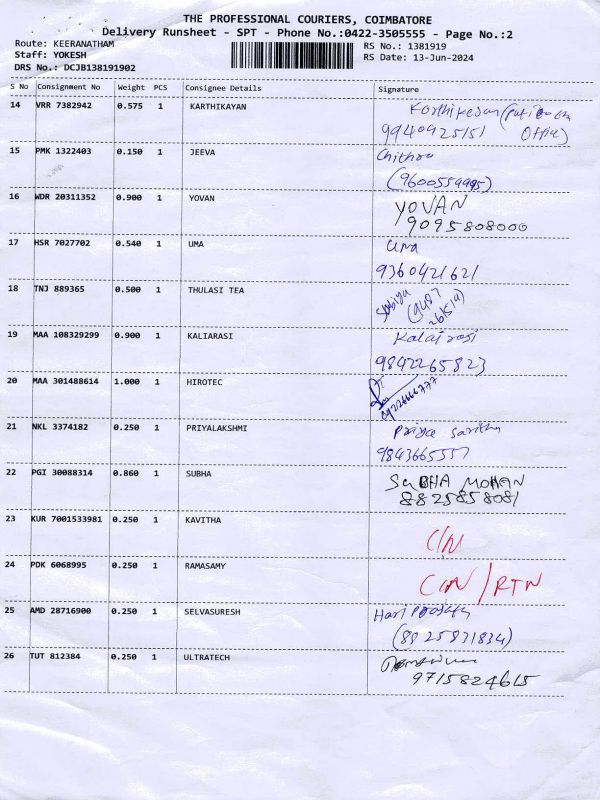 THE PROFESSIONAL COURIERS, COIMBATORE
Delivery Runsheet - SPT - Phone No.:0422-3505555 - Page No.:2
Route: KEERANATHAM
Staff: YOKESH
DRS No.: DCJB138191902
RS No.: 1381919
RS Date: 13-Jun-2024
S No Consignment No Weight PCS Consignee Details Signature
14 VRR 7382942 0.575 1 KARTHIKAYAN
9940925151 Office)
15 PMK 1322403 0.150 1 JEEVA Chithra
(9600559995)
16 WDR 20311352 0.900 1 YOVAN YOVAN
9095808000
17 HSR 7027702 0.540 1 UMA Uma
9360421621
18 TNJ 889365 0.500 1 THULASI TEA
19 MAA 108329299 0.900 1 KALIARASI Kalairasi
9842265823
20 MAA 301488614 1.000 1 HIROTEC
21 NKL 3374182 0.250 1 PRIYALAKSHMI Priya
22 PGI 30088314 0.860 1 SUBHA SuBHA MOHAN
8825858081
23 KUR 7001533981 0.250 1 KAVITHA
C/N
24 PDK 6068995 0.250 1 RAMASAMY
/RTN
25 AMD 28716900 0.250 1 SELVASURESH Hari
(8925831834)
26 TUT 812384 0.250 1 ULTRATECH
9715824615